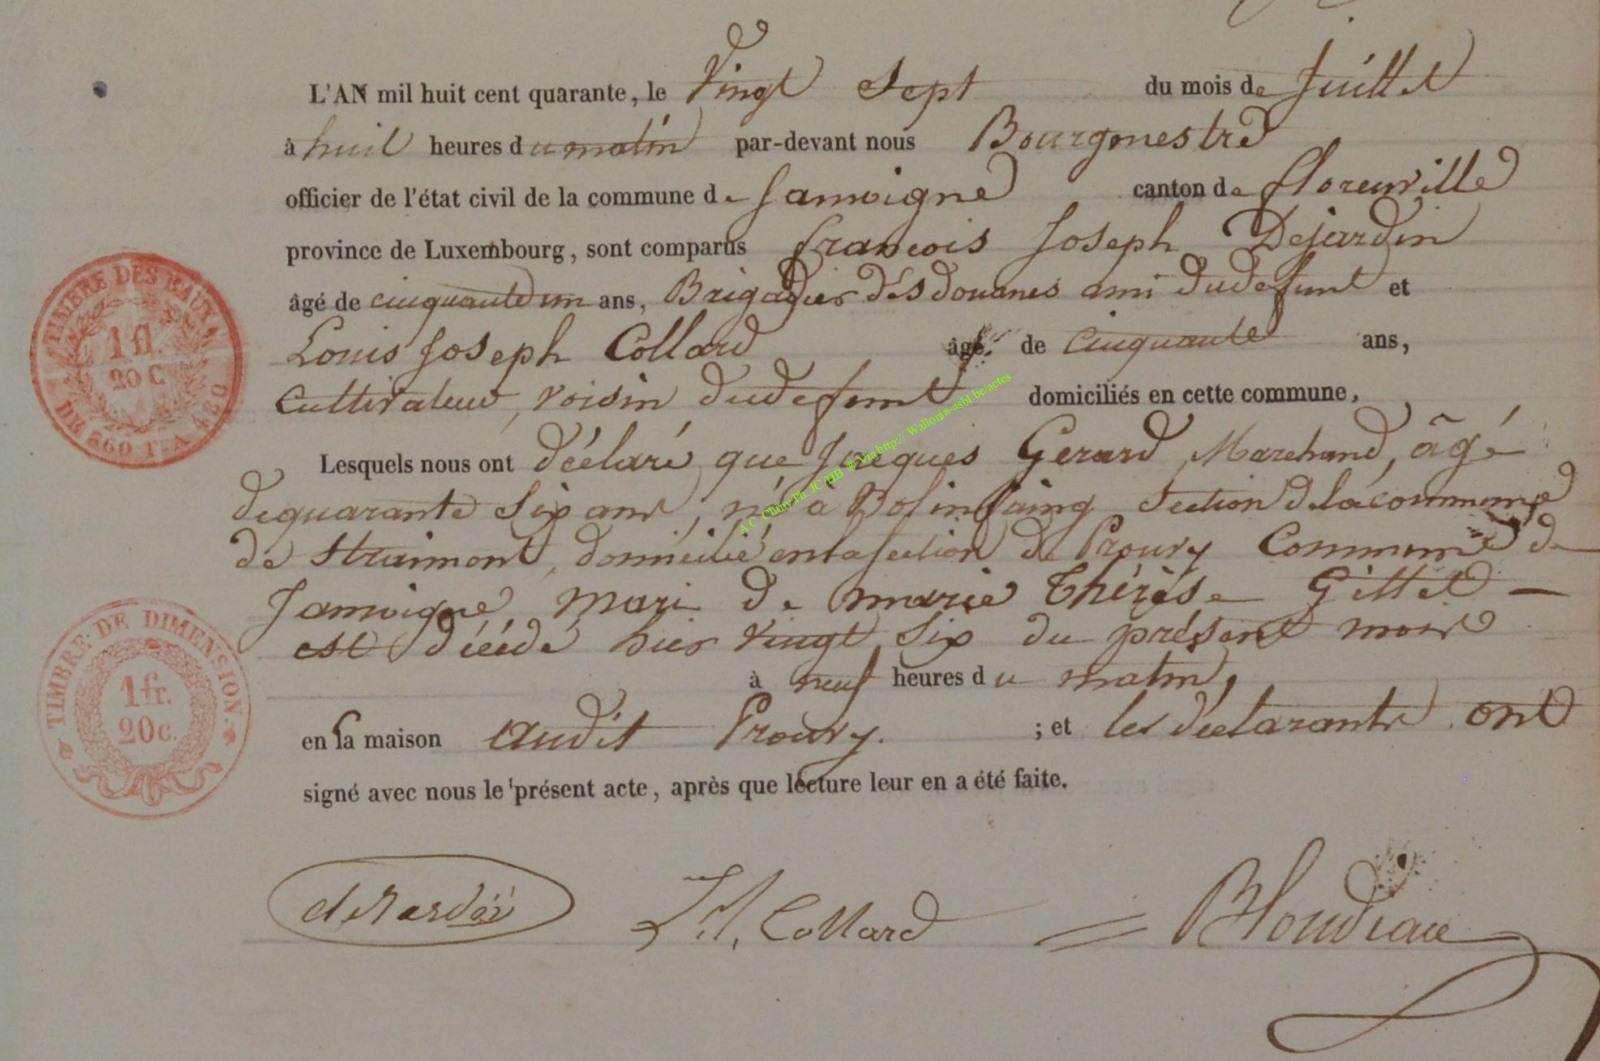 L'AN mil huit cent quarante, le Vingt Sept du mois de Juillet
à huit heures du matin par-devant nous Bourgmestre
officier de l'état civil de la commune de Jamoigne canton de florenville
province de Luxembourg, sont comparus francois Joseph Dejardin
âgé de cinquante un ans, Brigadier des douanes ami du defunt et
Louis Joseph Collard âgé de cinquante ans,
Cultivateur, voisin du defunt domiciliés en cette commune,
Lesquels nous ont déclaré que Jacques Gerard, Marchand, âgé
de quarante six ans, né à section de la commune
de Straimont, domicilié en la section de Prouvy Commune de
Jamoigne, mari de marie Thérèse Gillet —
est décédé hier vingt six du présent mois
à neuf heures du matin,
en la maison audit Prouvy. ; et les déclarants ont
signé avec nous le présent acte, après que lecture leur en a été faite.
Collard
TIMBRE DES
1 fl.
20 C
TIMBRE DE DIMENSION.
1 fr.
20c.